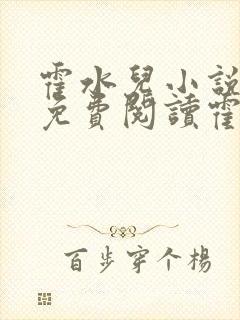 霍水兒小説
免費閱讀霍
百步穿个楊